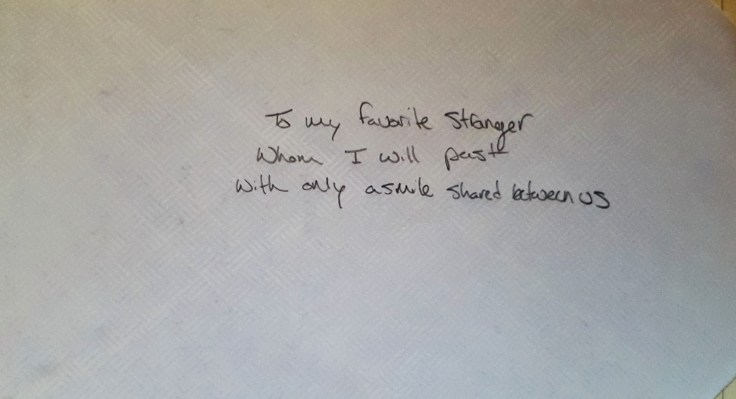 To my favorite stranger
Whom I will past
With only a smile shared between us